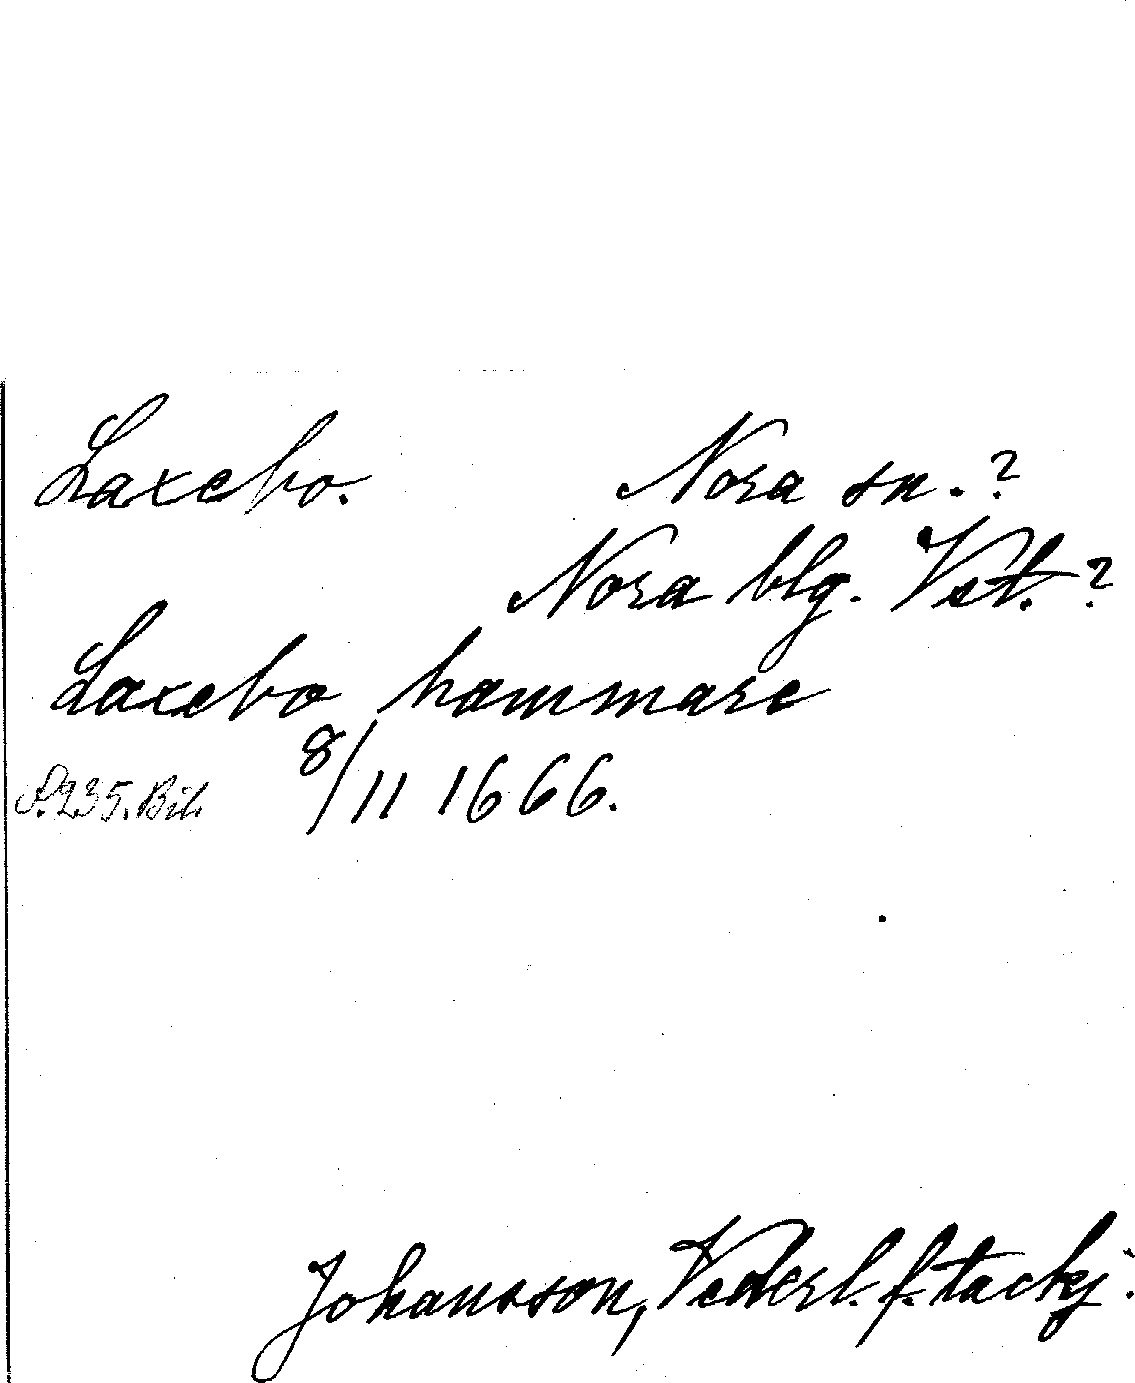 Laxebo. Nora sn. ?
Nora blg. Vst. ?
Laxebo hammare
S. 235. Bil. 8/11 1666.
Johansson, Vederl. f. tackj.